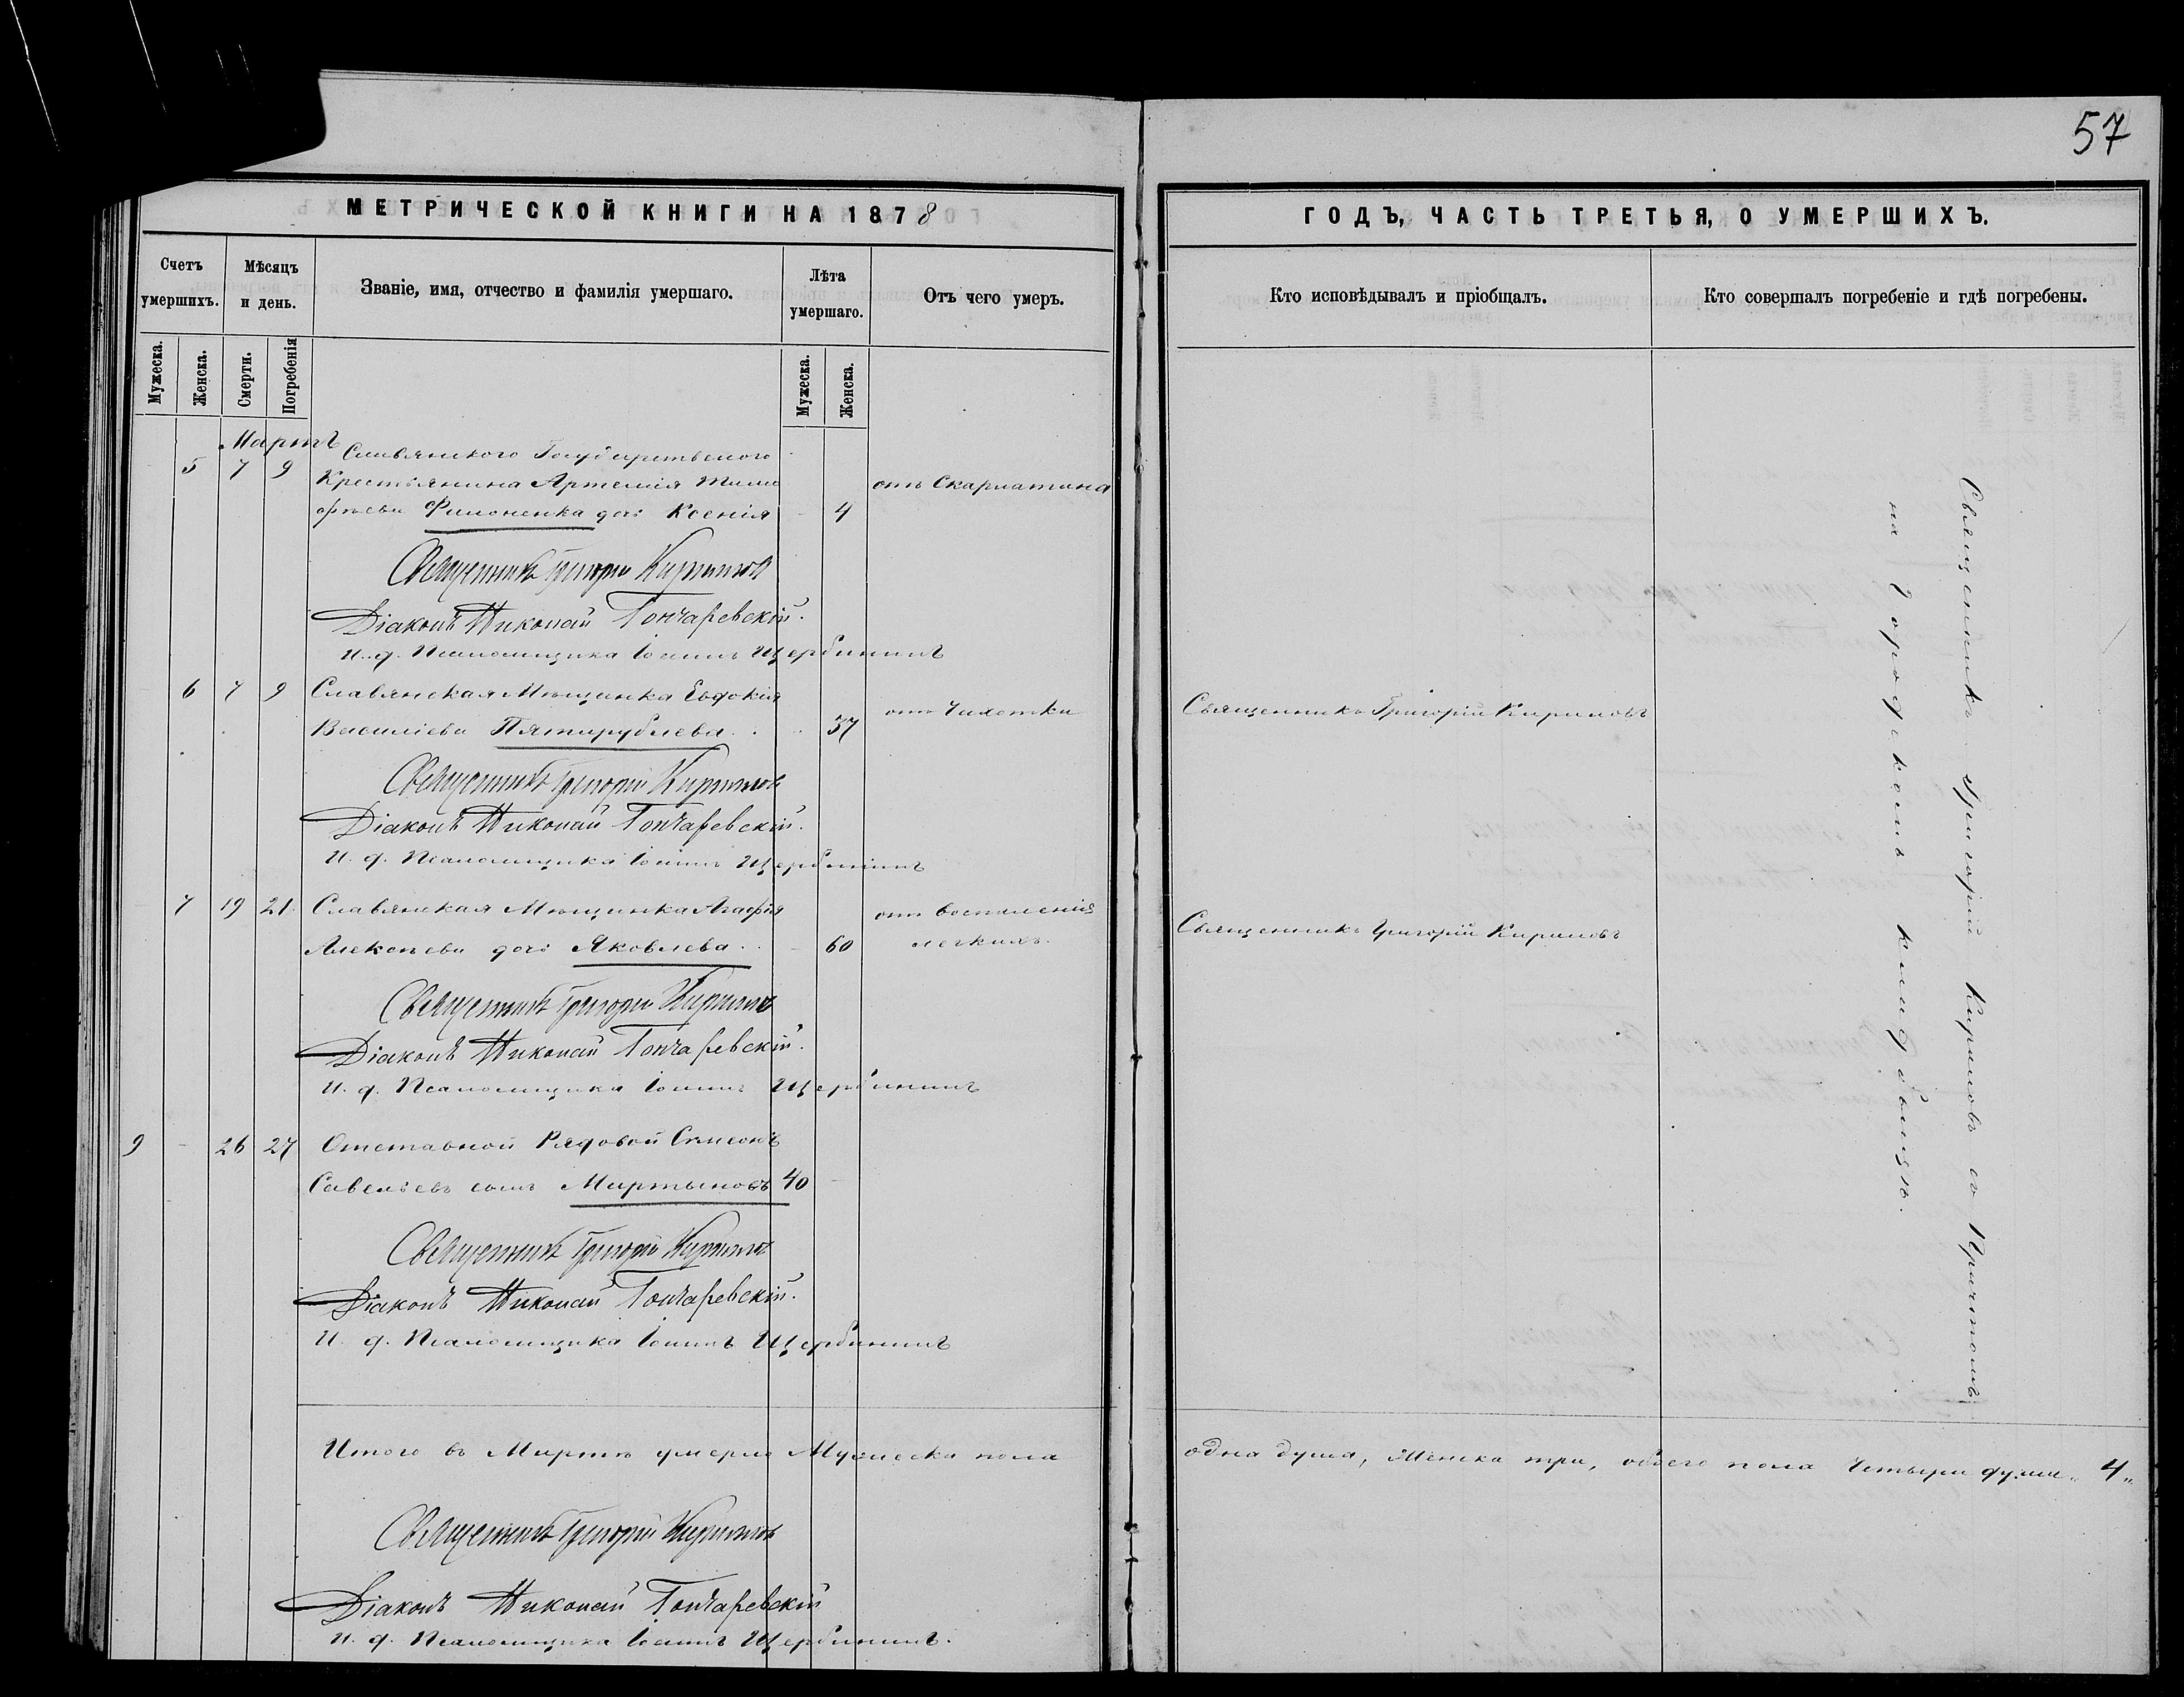 57
МЕТРИЧЕСКОЙ КНИГИ НА 1878
ГОДЪ, ЧАСТЬ ТРЕТЬЯ, О УМЕРШИХЪ.
Счетъ умершихъ.
Мѣсяцъ и день.
Званіе, имя, отчество и фамилія умершаго.
Лѣта умершаго.
Отъ чего умеръ.
Кто исповѣдывалъ и пріобщалъ.
Кто совершалъ погребеніе и гдѣ погребены.
Мужеска.
Женска.
Смерти.
Погребенія
Мужеска.
Женска.
Мартъ
5 7 9 Славянского Государственого
Крестьянина Артемія Тимо
фѣева Филоненка дочь Ксенія 4 отъ Скарлатина
Священникъ Григорій Кириловъ
Діаконъ Николай Гончаревскій.
И. д. Псаломщика Іоаннъ Щербининъ
6 7 9 Славянская Мѣщанка Евдокія
Василіева Пятирублева 37 отъ Чахотки Священникъ Григорій Кириловъ
Священникъ Григорій Кириловъ
Діаконъ Николай Гончаревскій.
И. д. Псаломщика Іоаннъ Щербининъ
7 19 21 Славянская Мѣщанка Агафія отъ воспаленія
Алексѣева дочь Яковлева 60 легкихъ. Священникъ Григорій Кириловъ
Священникъ Григорій Кириловъ
Діаконъ Николай Гончаревскій.
И. д. Псаломщика Іоаннъ Щербининъ
9 - 26 27 Отставной Рядовой Симеонъ
Савельевъ сынъ Мартыновъ 40
Священникъ Григорій Кириловъ
Діаконъ Николай Гончаревскій.
И. д. Псаломщика Іоаннъ Щербининъ
Священникъ Григорій Кириловъ съ Причтомъ
на Городскомъ кладбищѣ.
Итого въ Мартѣ умерло Мужеска пола одна душа, Женска три, обоего пола Четыри души „4„
Священникъ Григорій Кириловъ
Діаконъ Николай Гончаревскій
И. д. Псаломщика Іоаннъ Щербининъ.